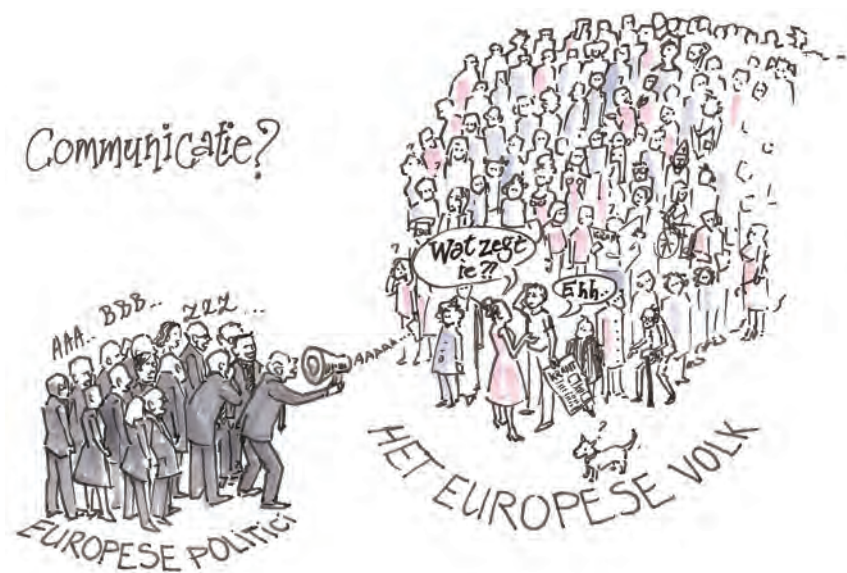 Communicatie?
AAA.. BBB... ZZZ...
AAAAA...
Wat zegt
ie??
Ehh..
KRANT
EUROPESE POLITICI
HET EUROPESE VOLK